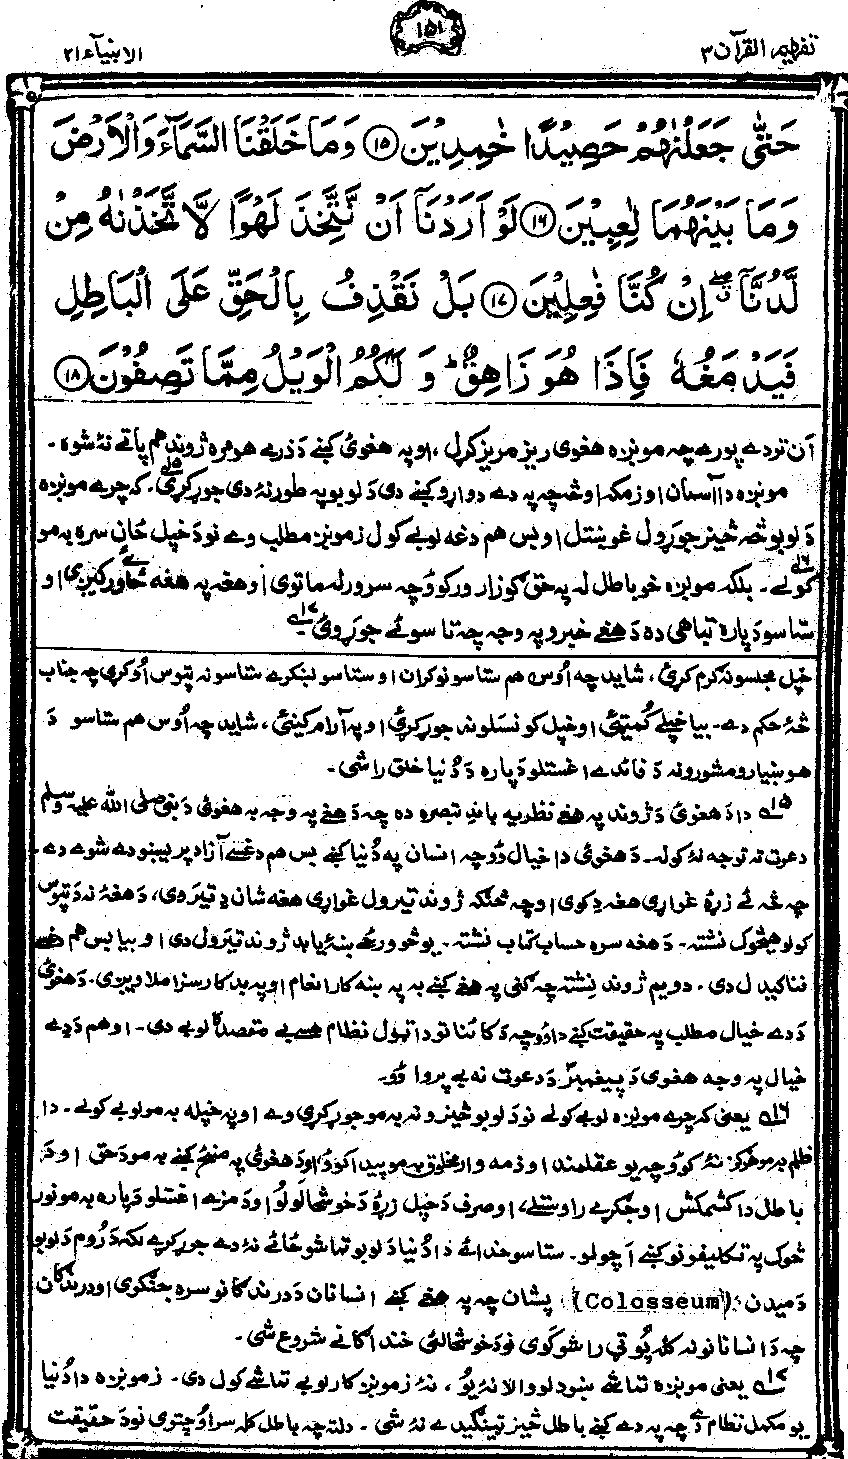 تفهیم القرآن ۳
۱۵۱
الانبیآء ۲۱
حَتّٰى جَعَلْنٰهُمْ حَصِيْدًا خٰمِدِيْنَ ﴿۱۵﴾ وَمَا خَلَقْنَا السَّمَآءَ وَالْاَرْضَ
وَمَا بَيْنَهُمَا لٰعِبِيْنَ ﴿۱۶﴾ لَوْ اَرَدْنَآ اَنْ نَّتَّخِذَ لَهْوًا لَّا تَّخَذْنٰهُ مِنْ
لَّدُنَّآ ۖ اِنْ كُنَّا فٰعِلِيْنَ ﴿۱۷﴾ بَلْ نَقْذِفُ بِالْحَقِّ عَلَى الْبَاطِلِ
فَيَدْمَغُهٗ فَاِذَا هُوَ زَاهِقٌ ؕ وَ لَكُمُ الْوَيْلُ مِمَّا تَصِفُوْنَ ﴿۱۸﴾
آن تردے پورے چہ مونږه هغوی ریز مریز کړل ، او په هغوئ کښے دَ ذرے هومره ژوند هم پاتے نۀ شوه ۔
مونږه دا آسمان او زمکه او څه چه په دے دواړو کښے دی دَ لوبو په طور نۀ دی جوړ کړی ۱۵ۦ ۔ که چرے مونږه
دَ لوبو څه څیز جوړول غوښتل او بس هم دغه لوبے کول زمونږ مطلب وے نو دَ خپل ځان سره به مو
کولے ۱۶ۦ ۔ بلکه مونږه خو باطل له په حق گوزار ورکوؤ چه سر ورله ماتوی او هغه په هغه ځاور کیږی او
ستاسو دَ پاره تباهی ده دَ هغے خبرو په وجه چه تاسوئے جوړوئ ۱۷ۦ
خپل مجلسونه گرم کړئ ، شاید چه اُوس هم ستاسو نوکران او ستاسو لښکرے ستاسو نه تپوس اُوکړی چه جناب
څۀ حکم دے ۔ بیا خپلے کمیټئ او خپل کونسلونه جوړ کړئ او په آرام کښینئ ، شاید چه اُوس هم ستاسو دَ
هوښیارو مشورو نه دَ فائدے اغستلو دَ پاره دَ دُنیا خلق راشی ۔
۱۵ۦ دا دَ هغوئ دَ ژوند په هغے نظریه باندے تبصره ده چه دَ هغے په وجه به هغوئ دَ نبی صلی الله علیه وسلم
دعوت ته توجه نۀ کوله ۔ دَ هغوئ دا خیال وُو چه انسان په دُنیا کښے بس هم دغسے آزاد پریښودے شوے دے ۔
چه څه ئے زړۀ غواړی هغه دِ کوی او چه څنگه ژوند تیرول غواړی هغه شان دِ تیروی، دَ هغۀ نه دَ تپوس
کولو هیڅوک نشته ۔ دَ هغه سره حساب کتاب نشته ۔ یو څو ورځے ښۀ یا بد ژوند تیرول دی او بیا بس هم دغسے
فنا کیدل دی ۔ دویم ژوند نشته چه گنی په هغے کښے به په ښه کار انعام او په بد کار سزا ملاویږی ۔ دَ هغوئ
دَ دے خیال مطلب په حقیقت کښے دا وُو چه دَ کائنات دا ټول نظام هسے بے مقصده لوبے دی ۔ او هم دَ دے
خیال په وجه هغوی دَ پیغمبرؐ دَ دعوت نه بے پروا وُو ۔
۱۶ۦ یعنی که چرے مونږه لوبے کولے نو دَ لوبو څیزونه به مو جوړ کړی وے او په خپله به مو لوبے کولے ۔ دا
ظلم به مو هرگز نۀ کوؤ چه یو عقلمند او ذمه وار مخلوق به مو پیدا کوؤ او دَ هغوئ په منځ کښے به مو دَ حق او دَ
باطل دا کشمکش او جگړے راوستلے، او صرف دَ خپل زړۀ دَ خوشحالولو او دَ مزے اغستلو دَ پاره به مو نور
څوک په تکلیفونو کښے اَچولو ۔ ستاسو خدائے دا دُنیا دَ لوبو تماشو ځائے نۀ دے جوړ کړے لکه دَ رُوم دَ لوبو
دَ میدان (Colosseum) پشان چه په هغے کښے انسانان دَ درندگانو سره جنگوی او درندگان
چه دَ انسانانو نه کله بُوټی راشوکوی نو دَ خوشحالئ خندا گانے شروع شی ۔
۱۷ۦ یعنی مونږه تماشے ښودلو والا نۀ یُو ، نۀ زمونږ کار لوبے تماشے کول دی ۔ زمونږه دا دُنیا
یو مکمل نظام دے چه په دے کښے باطل څیز ټینگیدے نۀ شی ۔ دلته چه باطل کله سر اُوچتوی نو دَ حقیقت